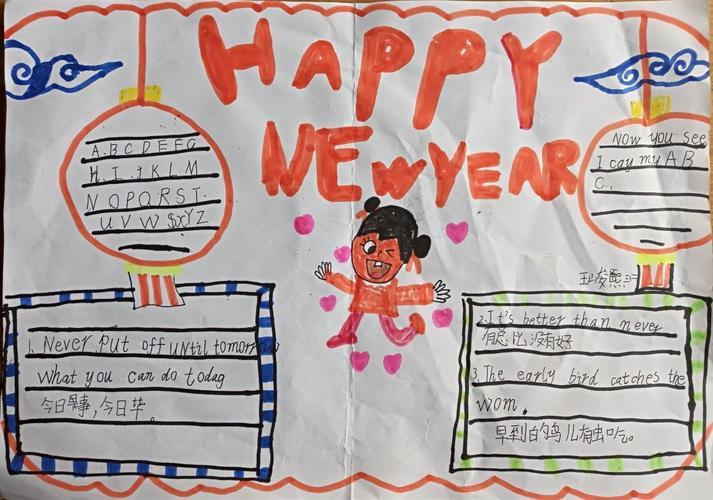 HAPPY
NEW YEAR
A.B C D E F G
H. I. J K L M
N O P Q R S T.
U V W X Y Z
Now you see
I cay my A B
C.
1. Never put off until tomorrow
what you can do today
今日事,今日毕。
2. It's better than never
有总比没有好
3. The early bird catches the
wom.
早到的鸟儿有虫吃。